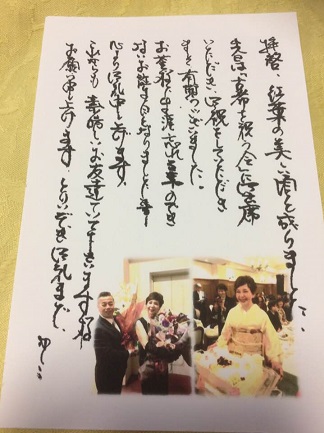 拝啓、紅葉の美しい頃と成りました。
先日は「古希を祝う会」に御出席
いただき、御祝をしていただき
まして有難うございました。
お蔭様で生涯忘れる事のでき
ないお誕生日を祝りました事
心より御礼申し上げます。
これからも素晴しいお友達でいて下さいますようお
お願い申し上げます。とりいそぎ御礼まで。かしこ